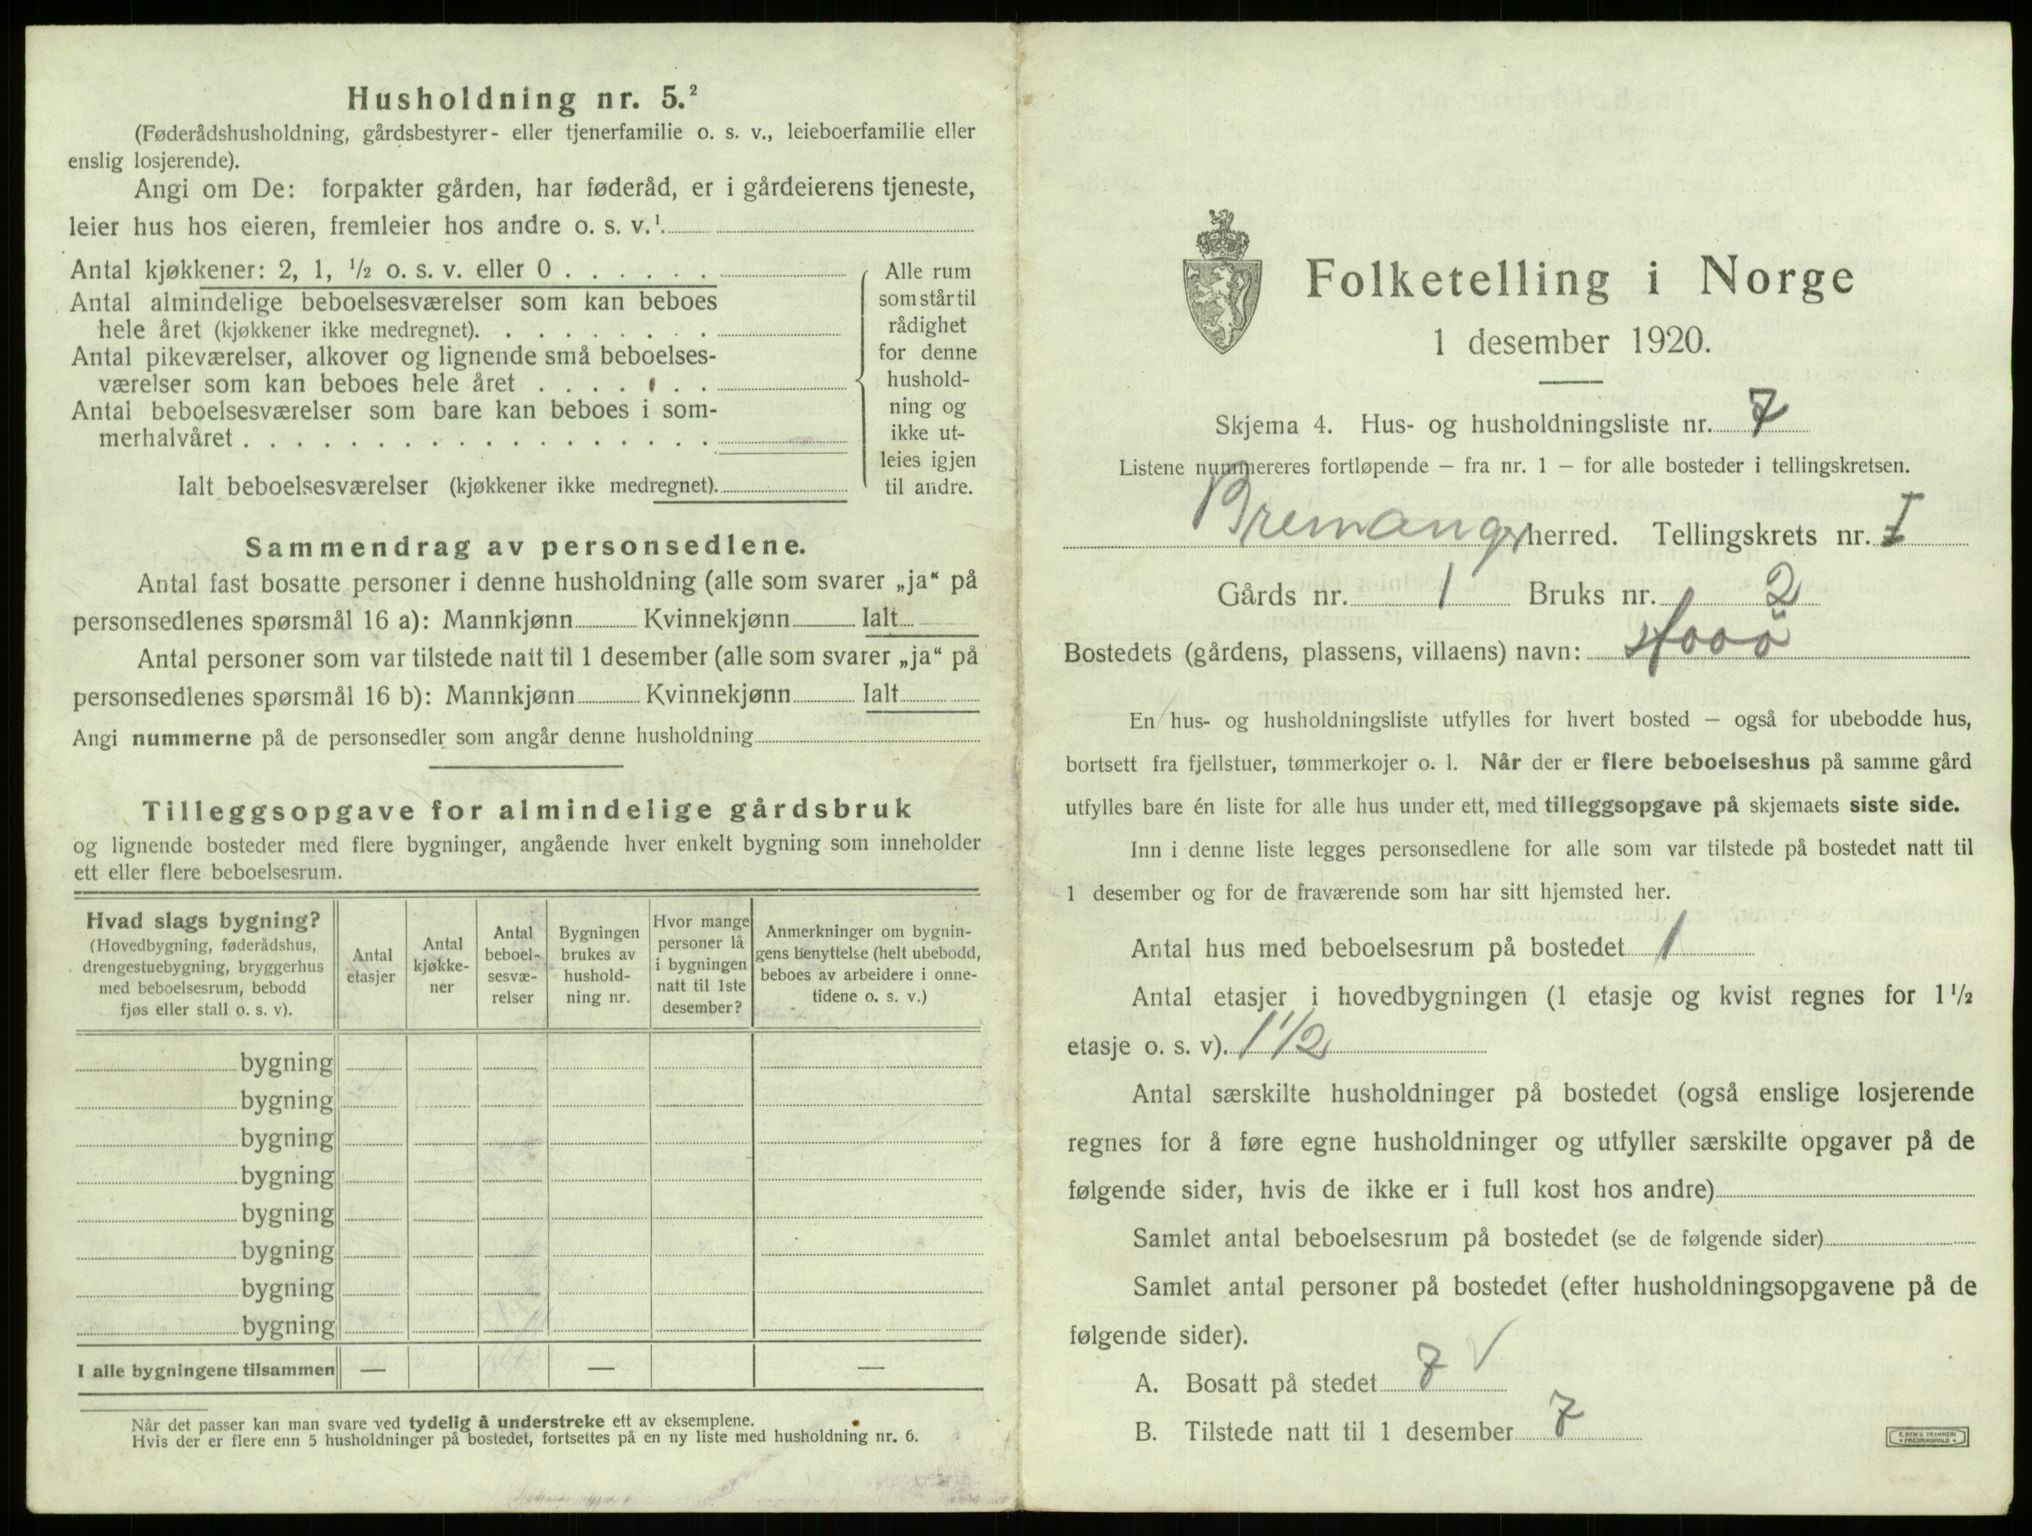 Husholdning nr. 5.²
(Føderådshusholdning, gårdsbestyrer- eller tjenerfamilie o. s. v., leieboerfamilie eller
enslig losjerende).
Angi om De: forpakter gården, har føderåd, er i gårdeierens tjeneste,
leier hus hos eieren, fremleier hos andre o. s. v.¹
Antal kjøkkener: 2, 1, ½ o. s. v. eller 0 . . . . . .
Antal almindelige beboelsesværelser som kan beboes
hele året (kjøkkener ikke medregnet). . . . . . . . .
Antal pikeværelser, alkover og lignende små beboelses-
værelser som kan beboes hele året . . . . . . .
Antal beboelsesværelser som bare kan beboes i som-
merhalvåret . . . . . . . . . . . . . . . . . .
Ialt beboelsesværelser (kjøkkener ikke medregnet).
Alle rum
som står til
rådighet
for denne
hushold-
ning og
ikke ut-
leies igjen
til andre.
Sammendrag av personsedlene.
Antal fast bosatte personer i denne husholdning (alle som svarer „ja“ på
personsedlenes spørsmål 16 a): Mannkjønn Kvinnekjønn Ialt
Antal personer som var tilstede natt til 1 desember (alle som svarer „ja“ på
personsedlenes spørsmål 16 b): Mannkjønn Kvinnekjønn Ialt
Angi nummerne på de personsedler som angår denne husholdning
Tilleggsopgave for almindelige gårdsbruk
og lignende bosteder med flere bygninger, angående hver enkelt bygning som inneholder
ett eller flere beboelsesrum.
Hvad slags bygning?
(Hovedbygning, føderådshus,
drengestuebygning, bryggerhus
med beboelsesrum, bebodd
fjøs eller stall o. s. v).
Antal
etasjer
Antal
kjøkke-
ner
Antal
beboel-
sesvæ-
relser
Bygningen
brukes av
hushold-
ning nr.
Hvor mange
personer lå
i bygningen
natt til 1ste
desember?
Anmerkninger om bygnin-
gens benyttelse (helt ubebodd,
beboes av arbeidere i onne-
tidene o. s. v.)
bygning
bygning
bygning
bygning
bygning
bygning
bygning
bygning
I alle bygningene tilsammen — — —
Når det passer kan man svare ved tydelig å understreke ett av eksemplene.
Hvis der er flere enn 5 husholdninger på bostedet, fortsettes på en ny liste med husholdning nr. 6.
Folketelling i Norge
1 desember 1920.
Skjema 4. Hus- og husholdningsliste nr. 7
Listene nummereres fortløpende – fra nr. 1 – for alle bosteder i tellingskretsen.
Bremanger herred. Tellingskrets nr. I
Gårds nr. 1 Bruks nr. 2
Bostedets (gårdens, plassens, villaens) navn:
En hus- og husholdningsliste utfylles for hvert bosted – også for ubebodde hus,
bortsett fra fjellstuer, tømmerkojer o. l. Når der er flere beboelseshus på samme gård
utfylles bare én liste for alle hus under ett, med tilleggsopgave på skjemaets siste side.
Inn i denne liste legges personsedlene for alle som var tilstede på bostedet natt til
1 desember og for de fraværende som har sitt hjemsted her.
Antal hus med beboelsesrum på bostedet 1
Antal etasjer i hovedbygningen (1 etasje og kvist regnes for 1½
etasje o. s. v). 1 1/2
Antal særskilte husholdninger på bostedet (også enslige losjerende
regnes for å føre egne husholdninger og utfyller særskilte opgaver på de
følgende sider, hvis de ikke er i full kost hos andre)
Samlet antal beboelsesrum på bostedet (se de følgende sider)
Samlet antal personer på bostedet (efter husholdningsopgavene på de
følgende sider).
A. Bosatt på stedet 7 √
B. Tilstede natt til 1 desember 7